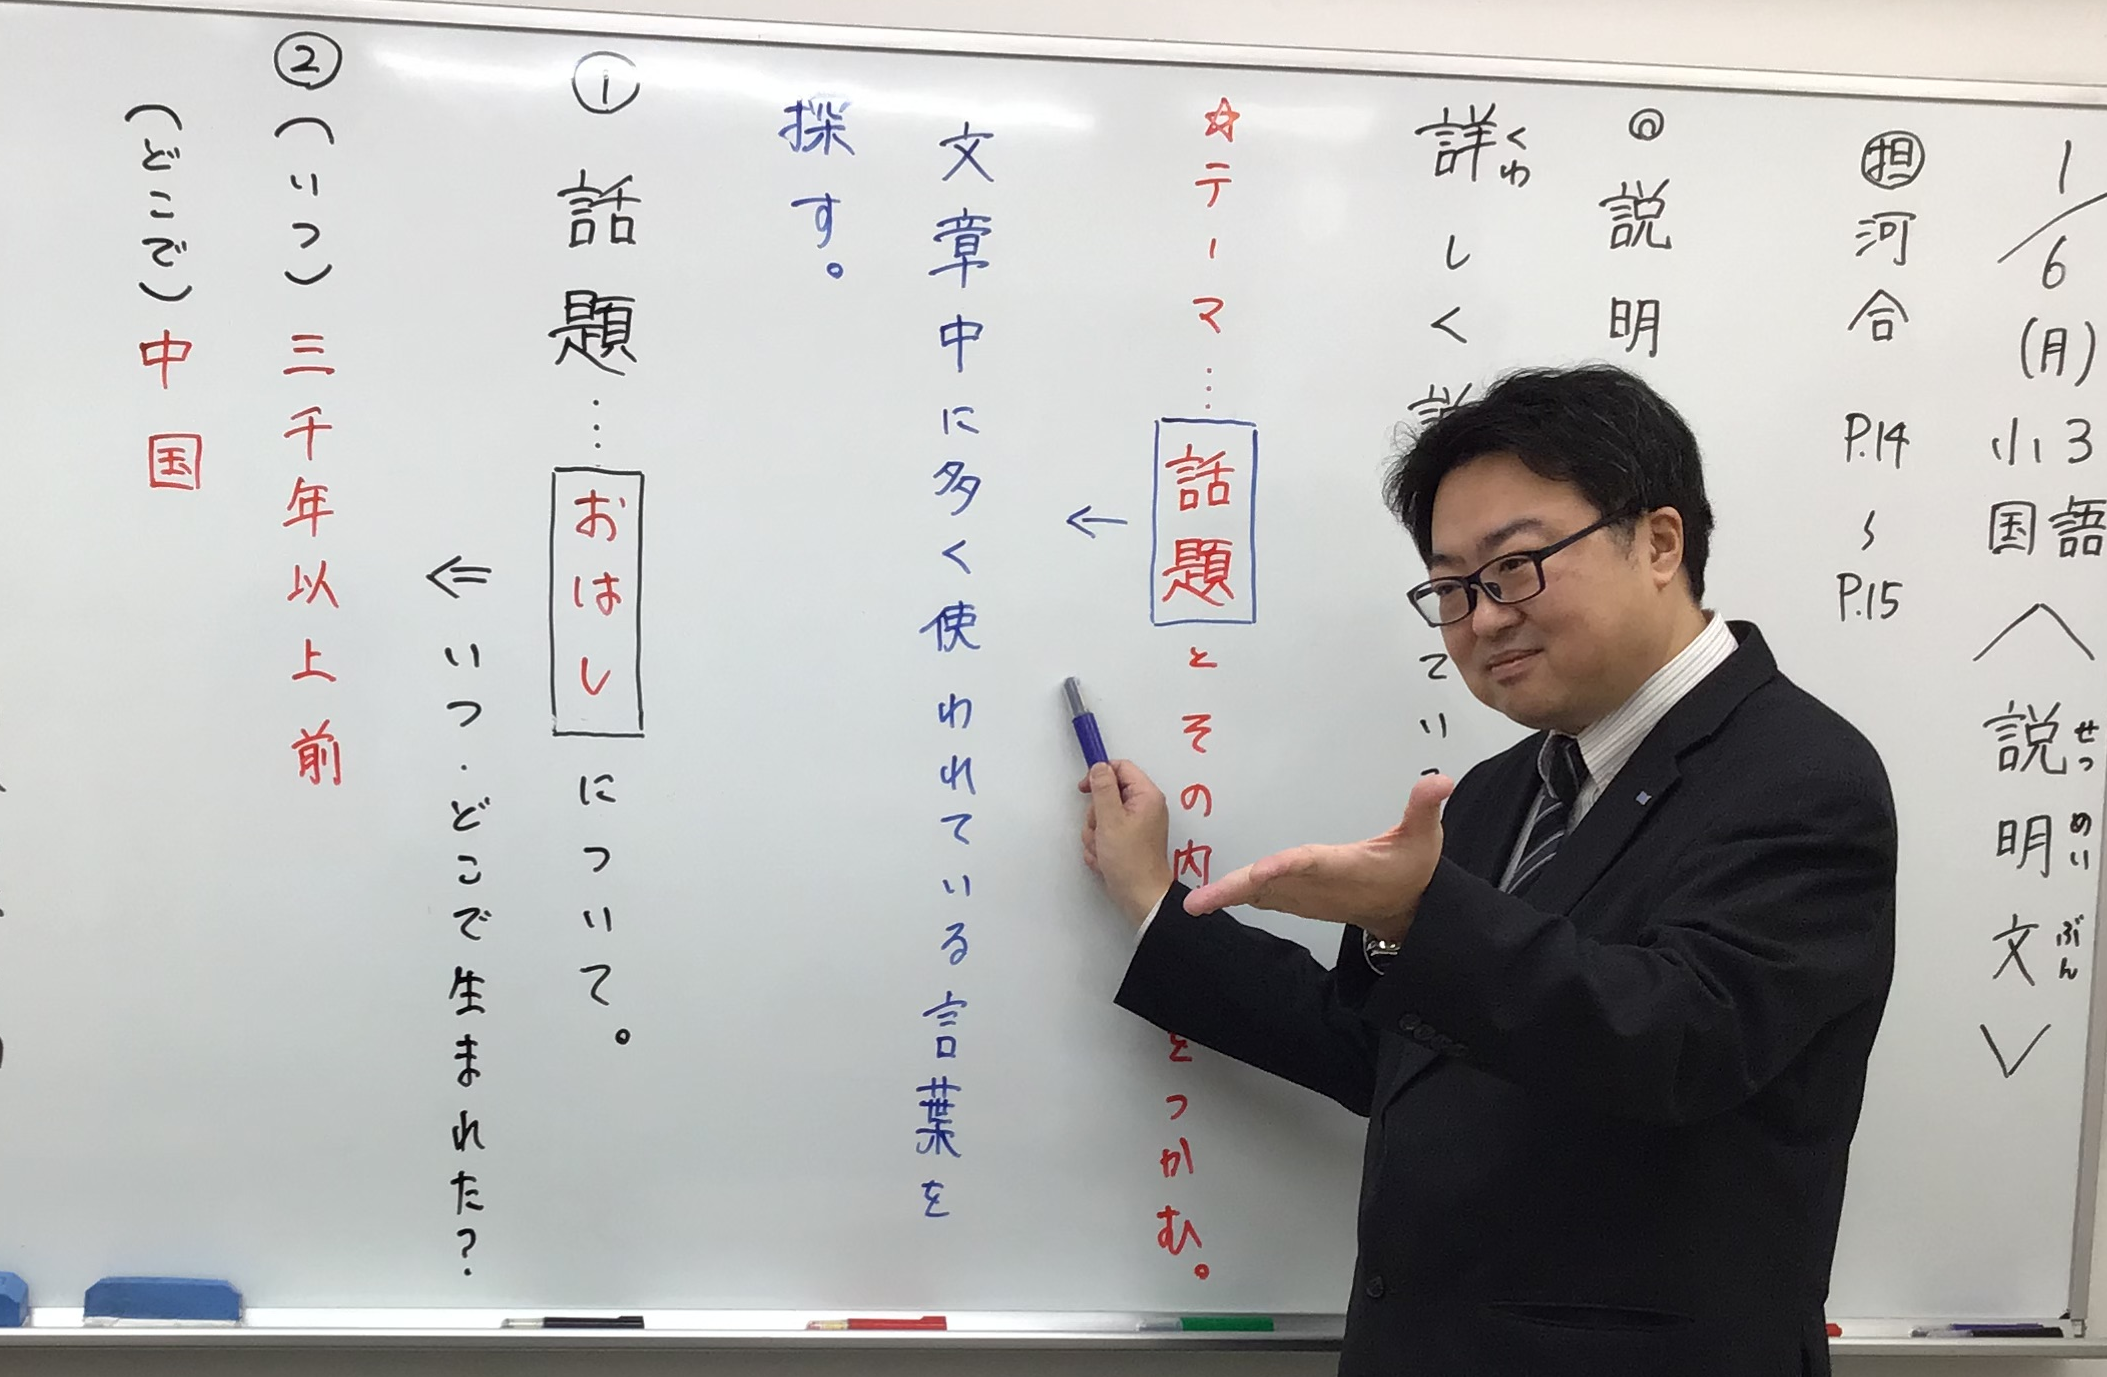 1/6(月)小3国語〈説明文〉
せつめいぶん
㊣河合 P.14〜P.15
◎説明
詳しく説 てい
くわ
☆テーマ…話題とその内 をつかむ。
←
文章中に多く使われている言葉を
探す。
① 話題……おはしについて。
⇐ いつ・どこで生まれた?
②(いつ)三千年以上前
(どこで)中国